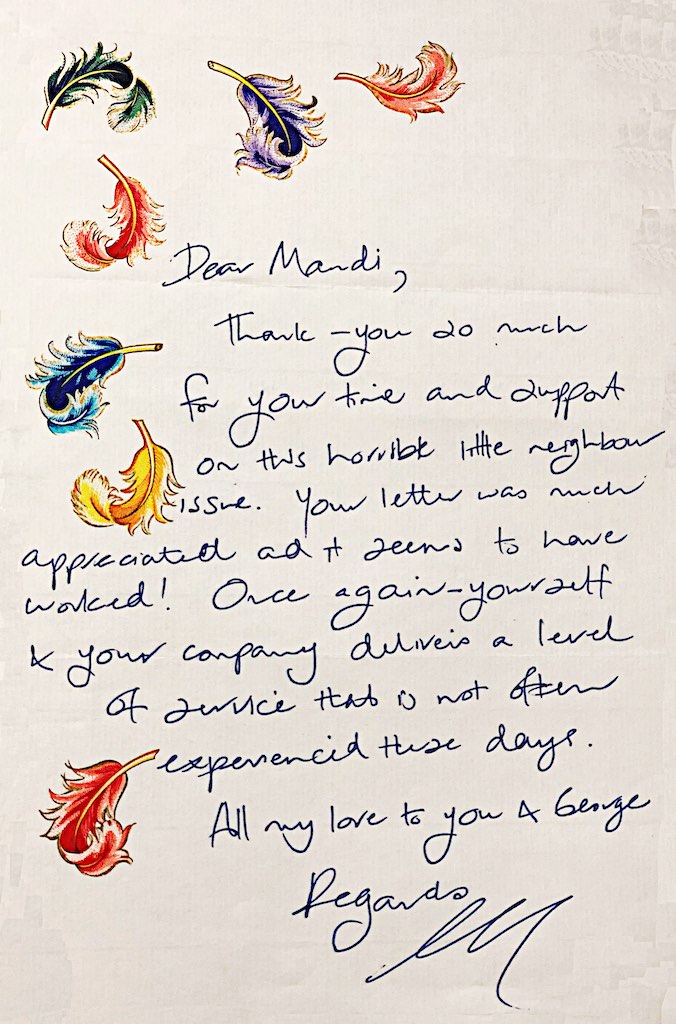 Dear Mandi,
Thank-you so much
for your time and support
on this horrible little neighbour
issue. Your letter was much
appreciated ad it seems to have
worked! Once again-yourself
& your company delivers a level
of service that is not often
experienced these days.
All my love to you & George
Regards